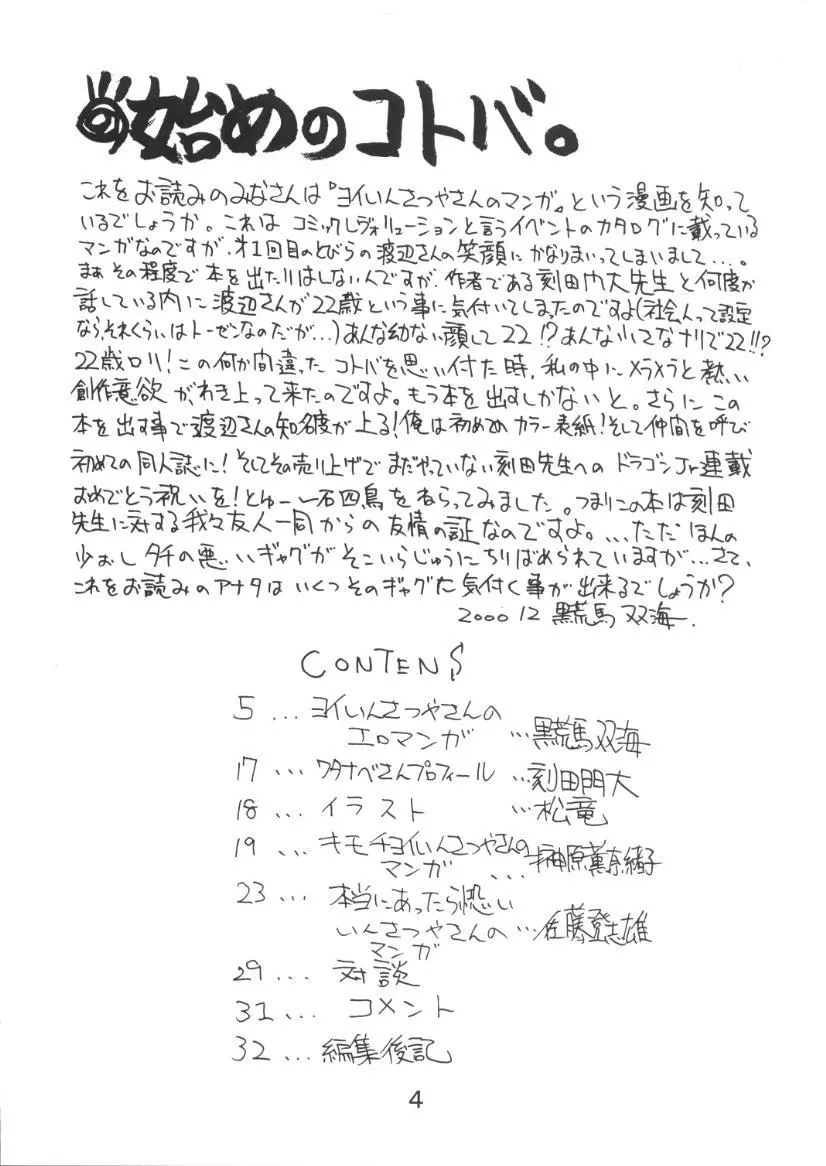 の始めのコトバ。
これをお読みのみなさんは『ヨイいんさつやさんのマンガ』という漫画を知って
いるでしょうか。これは コミックレヴォリューションと言うイベントのカタログに載っている
マンガなのですが、オ1回目のとびらの渡辺さんの笑顔にかなりまいってしまいまして...。
まぁその程度で本を出たりはしないんですが、作者である刻田門大先生と何度か
話している内に渡辺さんが22歳という事に気付いてしまったのですよ(社会人って設定
なら、それくらいはトーゼンなのだが...)あんな幼ない顔して22!?あんな小さなナリで22!!?
22歳ロリ!この何か間違ったコトバを思い付た時、私の中にメラメラと熱い
創作意欲がわき上って来たのですよ。もう本を出すしかないと。さらにこの
本を出す事で渡辺さんの知名度が上る!俺は初めてのカラー表紙!そして仲間を呼び
初めての同人誌に!そしてその売り上げでまだやっていない刻田先生へのドラゴンJr連載
おめでとう祝いを!とゆー一石四鳥をねらってみました。つまりこの本は刻田
先生に対する我々友人一同からの友情の証なのですよ。...ただほんの
少おしタチの悪いギャグがそこいらじゅうにちりばめられていますが...さて、
これをお読みのアナタはいくつそのギャグに気付く事が出来るでしょうか?
2000 12 黒荒馬 双海.
CONTENS
5 ... ヨイいんさつやさんの
エロマンガ ...黒荒馬双海
17 ... ワタナベさんプロフィール ...刻田門大
18 ... イラスト ...松竜
19 ... キモチヨイいんさつやさんの
マンガ ...榊原薫奈緒子
23 ... 本当にあったら恐い
いんさつやさんの ...佐藤登志雄
マンガ
29 ... 対談
31 ... コメント
32 ... 編集後記
4